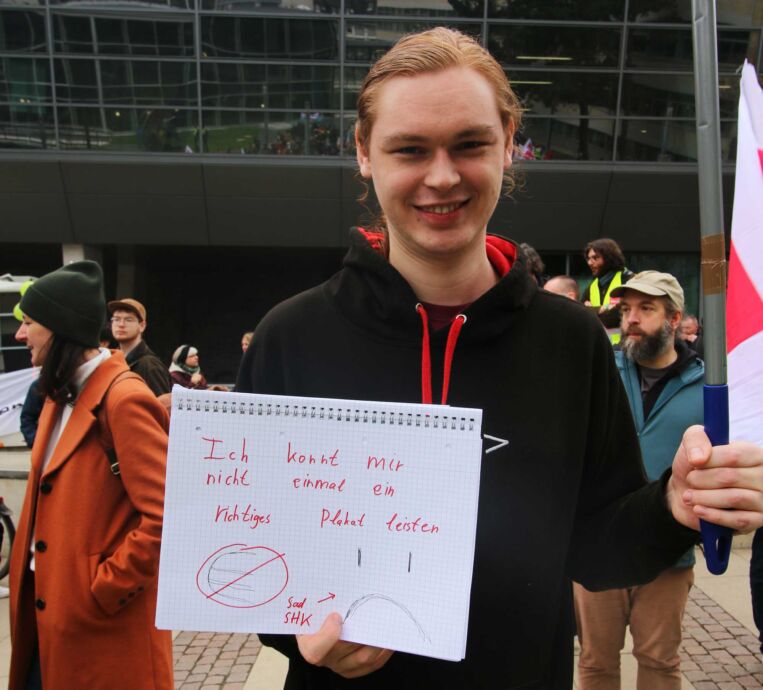 Ich konnt mir
nicht einmal ein
richtiges Plakat leisten
Sad
SHK